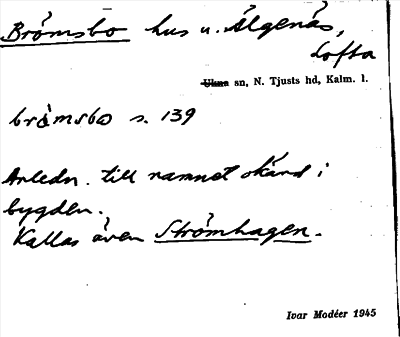 Brömsbo hus u. Älgenäs,
Lofta
Ukna sn, N. Tjusts hd, Kalm. l.
bråmsbo s. 139
Anledn. till namnet okänd i
bygden.
Kallas även Strömhagen.
Ivar Modéer 1945